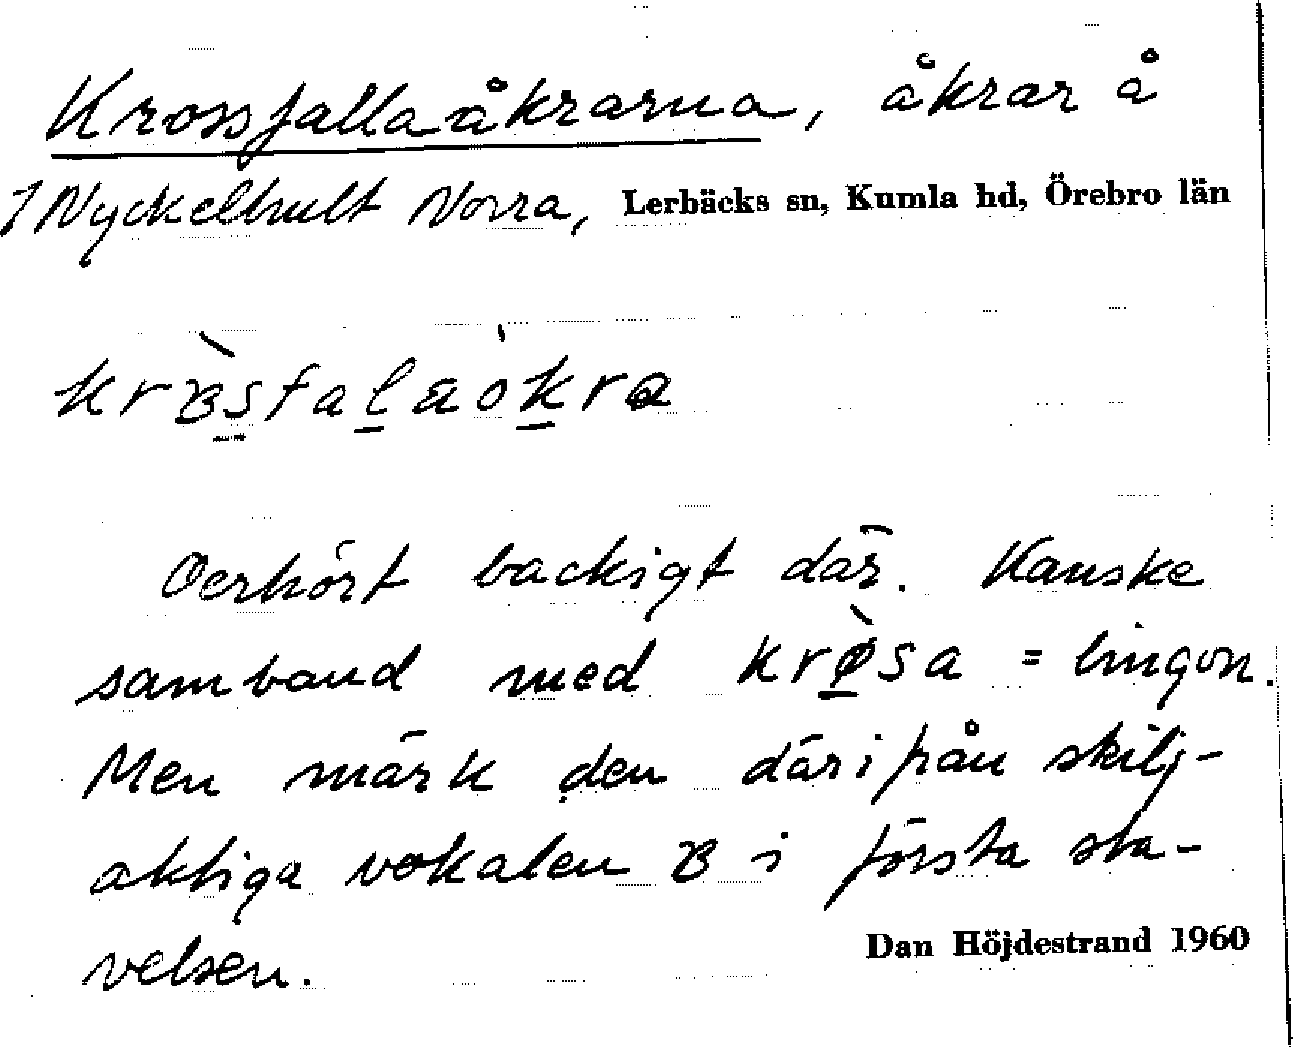 Krossfallaåkrarna, åkrar å
1 Nyckelhult Norra, Lerbäcks sn, Kumla hd, Örebro län
krɞ̀sfalaókra
Oerhört backigt där. Kanske
samband med krø̀sa = lingon.
Men märk den därifrån skilj-
aktiga vokalen ɞ i första sta-
velsen.
Dan Höjdestrand 1960